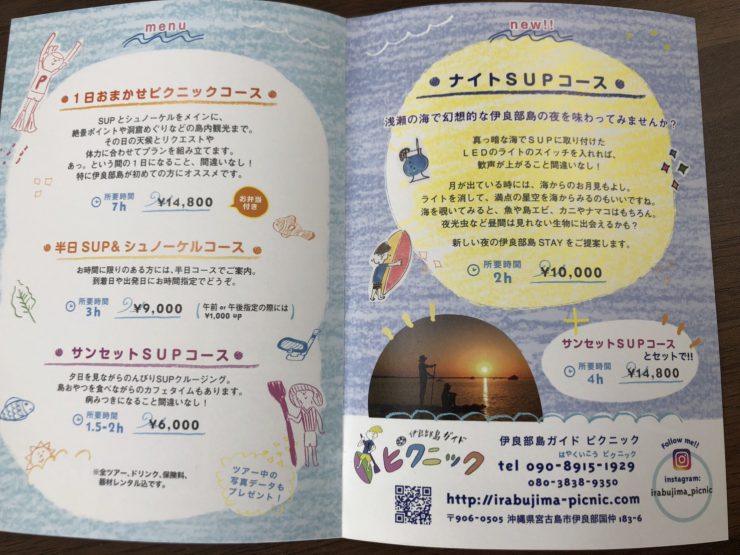 menu
1日おまかせピクニックコース
SUPとシュノーケルをメインに、
絶景ポイントや洞窟めぐりなどの島内観光まで。
その日の天候とリクエストや
体力に合わせてプランを組み立てます。
あっ。という間の1日になること、間違いなし！
特に伊良部島が初めての方にオススメです。
所要時間
7h
¥14,800
お弁当
付き
半日SUP&シュノーケルコース
お時間に限りのある方には、半日コースでご案内。
到着日や出発日にお時間指定でどうぞ。
所要時間
3h
¥9,000
(午前 or 午後指定の際には
¥1,000 up)
サンセットSUPコース
夕日を見ながらのんびりSUPクルージング。
島おやつを食べながらのカフェタイムもあります。
病みつきになること間違いなし！
所要時間
1.5-2h
¥6,000
※全ツアー、ドリンク、保険料、
器材レンタル込です。
ツアー中の
写真データも
プレゼント！
new!!
ナイトSUPコース
浅瀬の海で幻想的な伊良部島の夜を味わってみませんか？
真っ暗な海でSUPに取り付けた
LEDのライトのスイッチを入れれば、
歓声が上がること間違いなし！
月が出ている時には、海からのお月見もよし。
ライトを消して、満点の星空を海からみるのもいいですね。
海を覗いてみると、魚や島エビ、カニやナマコはもちろん。
夜光虫など昼間は見れない生物に出会えるかも？
新しい夜の伊良部島STAYをご提案します。
所要時間
2h
¥10,000
サンセットSUPコース
とセットで!!
所要時間
4h
¥14,800
伊良部島ガイド
ピクニック
伊良部島ガイド ピクニック
はやくいこう ピクニック
tel 090-8915-1929
080-3838-9350
http://irabujima-picnic.com
〒906-0505 沖縄県宮古島市伊良部国仲183-6
Follow me!!
instagram:
irabujima_picnic